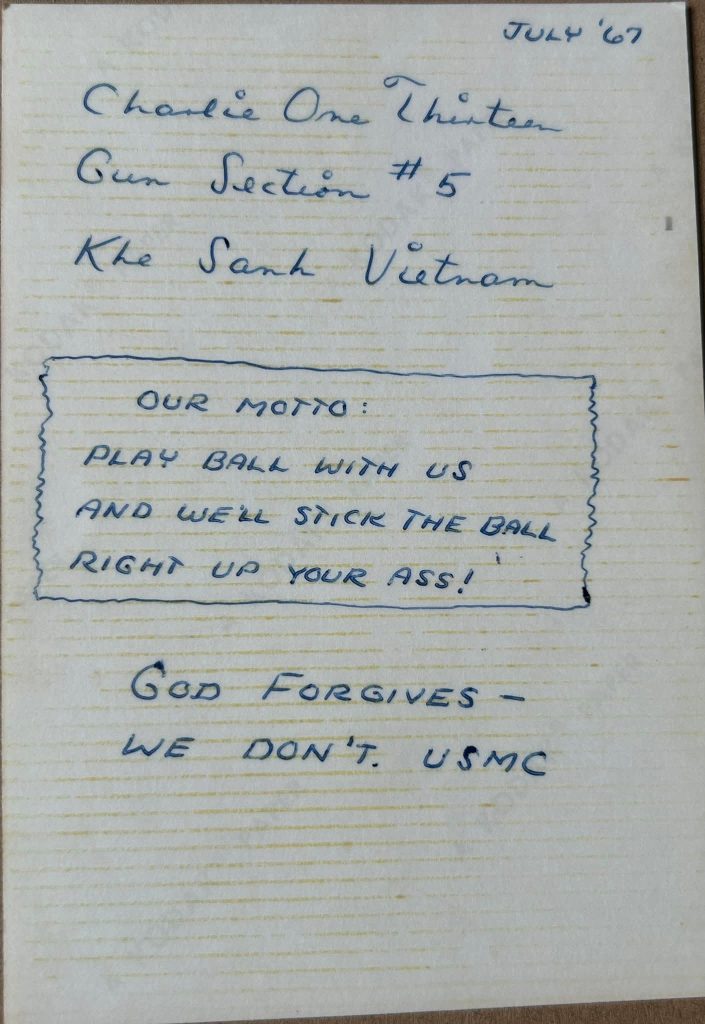 JULY '67
Charlie One Thirteen
Gun Section #5
Khe Sanh Vietnam
OUR MOTTO:
PLAY BALL WITH US
AND WE'LL STICK THE BALL
RIGHT UP YOUR ASS!
GOD FORGIVES –
WE DON'T. USMC